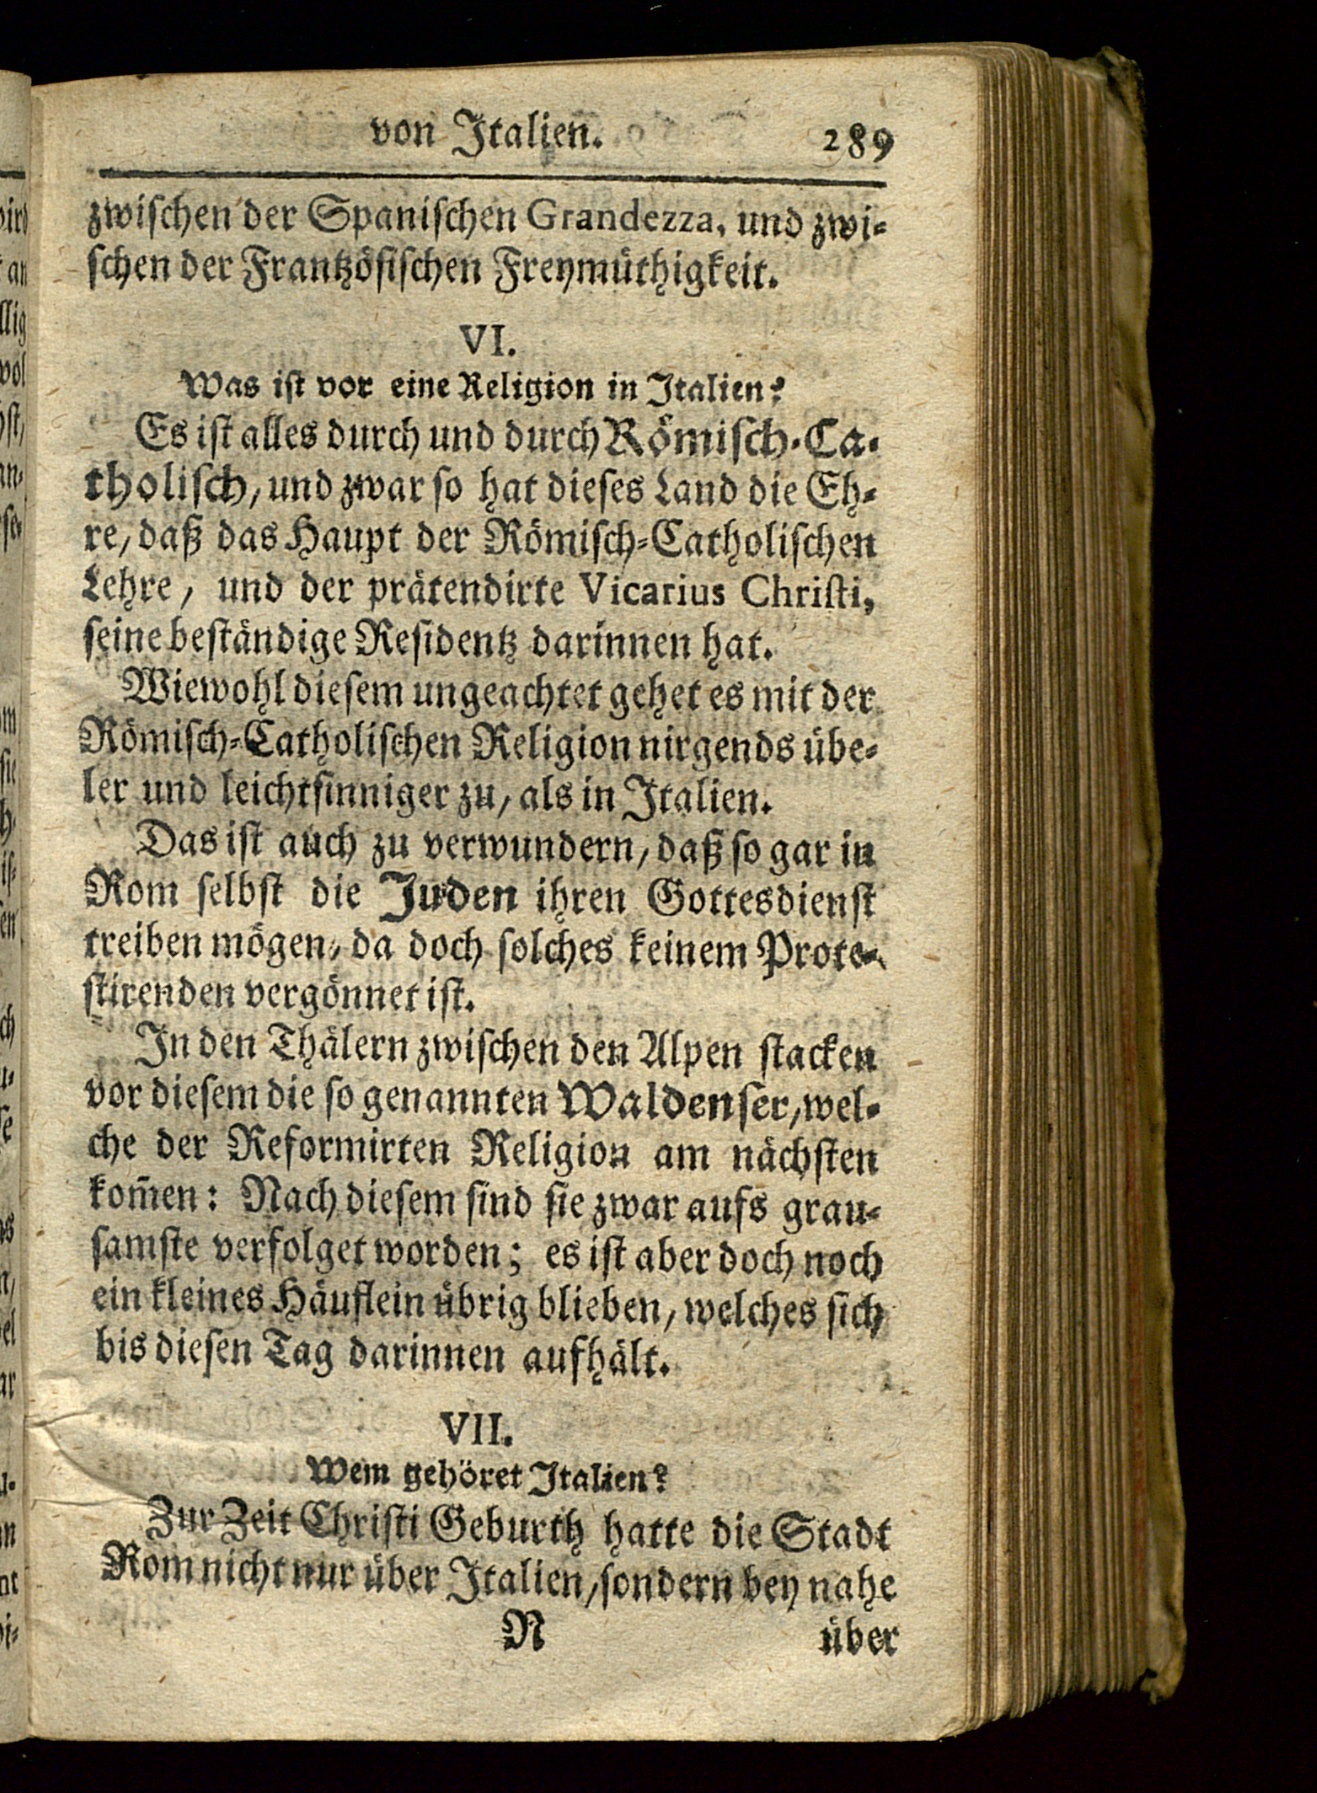 von Italien. 289
zwischen der Spanischen Grandezza, und zwi-
schen der Frantzösischen Freymüthigkeit.
VI.
Was ist vor eine Religion in Italien?
Es ist alles durch und durch Römisch-Ca-
tholisch, und zwar so hat dieses Land die Eh-
re, daß das Haupt der Römisch-Catholischen
Lehre, und der prätendirte Vicarius Christi,
seine beständige Residentz darinnen hat.
Wiewohl diesem ungeachtet gehet es mit der
Römisch-Catholischen Religion nirgends übe-
ler und leichtsinniger zu, als in Italien.
Das ist auch zu verwundern, daß so gar in
Rom selbst die Juden ihren Gottesdienst
treiben mögen, da doch solches keinem Prote-
stirenden vergönnet ist.
In den Thälern zwischen den Alpen stacken
vor diesem die so genannten Waldenser, wel-
che der Reformirten Religion am nächsten
kom̃en: Nach diesem sind sie zwar aufs grau-
samste verfolget worden; es ist aber doch noch
ein kleines Häuflein übrig blieben, welches sich
bis diesen Tag darinnen aufhält.
VII.
Wem gehöret Italien?
Zur Zeit Christi Geburth hatte die Stadt
Rom nicht nur über Italien, sondern bey nahe
N über